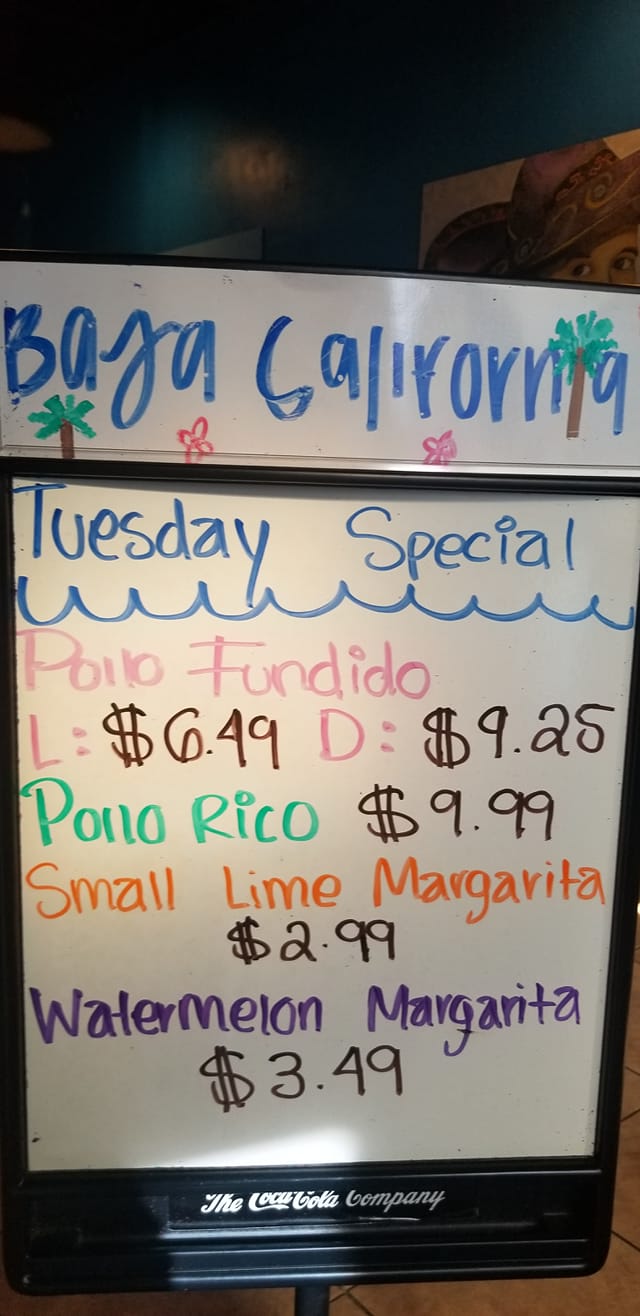 Baja California
Tuesday Special
Pollo Fundido
L: $6.49 D: $9.25
Pollo Rico $9.99
Small Lime Margarita
$2.99
Watermelon Margarita
$3.49
The Coca-Cola Company